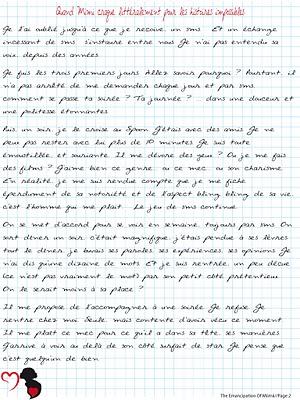 Quand Mimi craque littéralement pour les histoires impossibles
Je l'ai oublié jusqu'à ce que je reçoive un sms. Et un échange
incessant de sms s'instaure entre nous. Je n'ai pas entendu sa
voix depuis des années.
Je fuis les trois premiers jours. Allez savoir pourquoi ? Pourtant, il
n'a pas arrêté de me demander chaque jour et par sms
comment se passe ta soirée ? Ta journée ? dans une douceur et
une politesse étonnantes.
Puis un soir, je le croise au Spoon. J'étais avec des amis. Je ne
peux pas rester avec lui plus de 10 minutes. Je suis toute
émoustillée et souriante. Il me dévore des yeux ? Ou je me fais
des films ? J'aime bien ce genre, a ce mec, a son charisme.
En réalité, je me suis rendue compte que je me fiche
éperdument de sa notoriété et de l'aspect bling bling de sa vie.
c'est l'homme qui me plait. Le jeu de sms continue.
On se met d'accord pour se voir en semaine, toujours par sms. On
sort dîner un soir, c'était magnifique, j'étais pendue à ses lèvres
tout le dîner, je buvais ses paroles, ses expériences, ses opinions. Je
n'ai dis qu'une dizaine de mots. Et je suis rentrée, un peu déçue
(ce n'est pas vraiment le mot) par son petit côté prétentieux.
On le serait moins à sa place ?
Il me propose de l'accompagner à une soirée. Je refuse. Je
rentre chez moi. Seule, mais contente d'avoir vécu ce moment.
Il me plait ce mec, pour ce qu'il a dans sa tête, ses manières.
J'arrive à voir au delà de son côté surfait de star. Je pense que
c'est quelqu'un de bien.
The Emancipation Of Mimi / Page 2